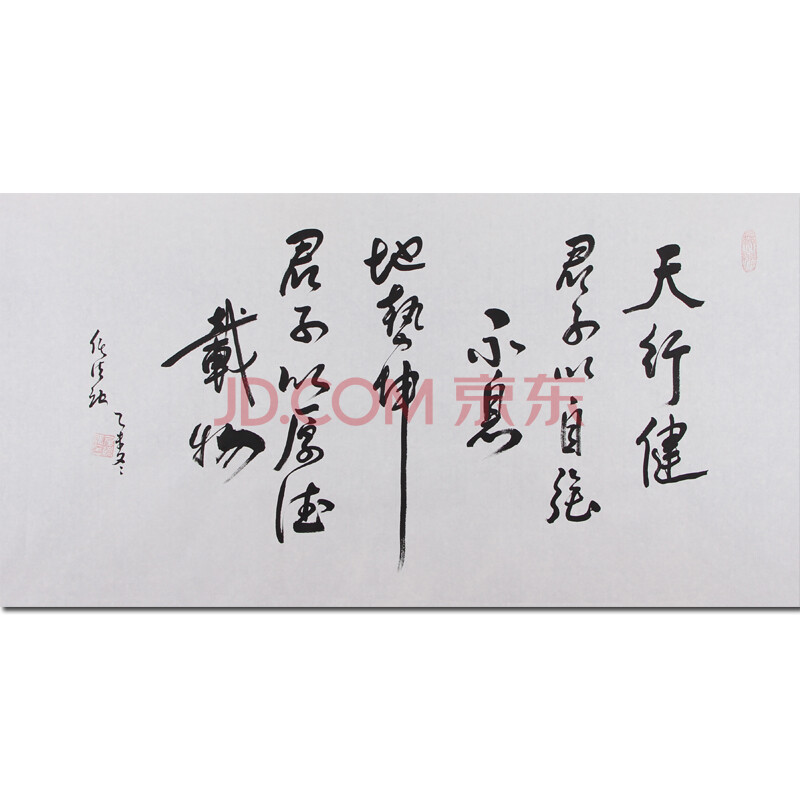 天行健
君子以自强
不息
地势坤
君子以厚德
載物
乙未冬
JD.COM 京东